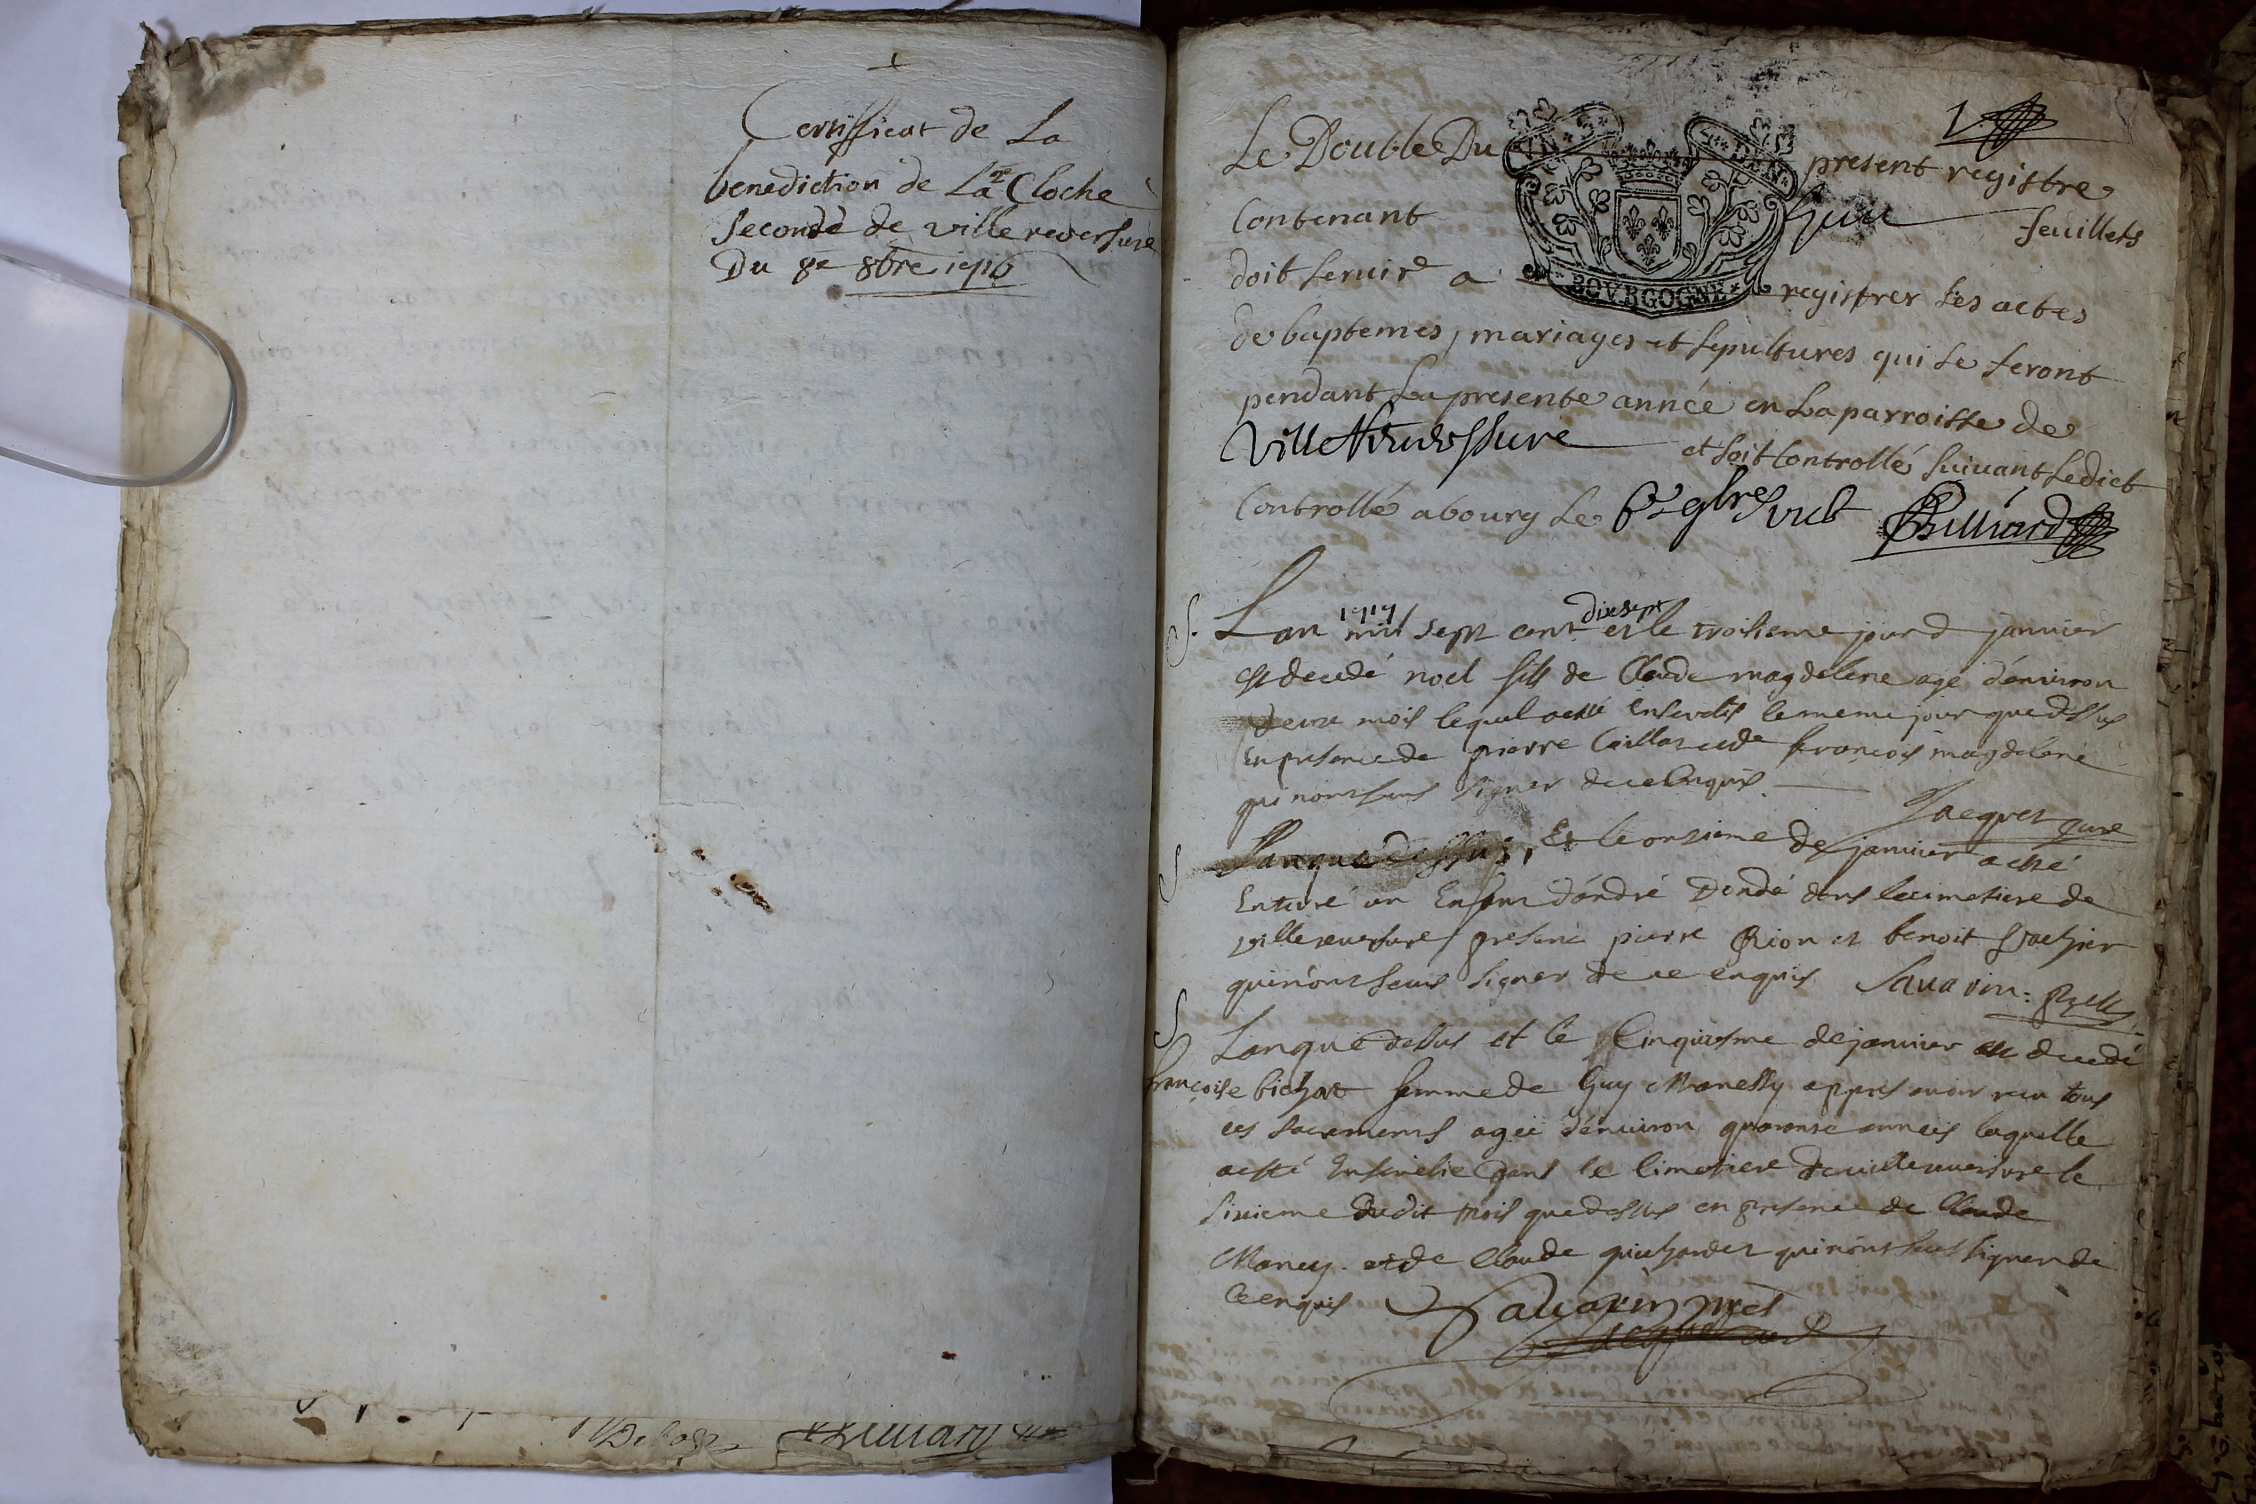 Certifficat de La
benediction de La 2e Cloche
Seconde de villereversure
Du 8e 8bre 1716
Le Double Du present registre
Contenant huit feuillets
doit servire a registrer les actes
de baptemes, mariages et sepultures qui se feront
pendant la presente année en la parroisse de
Villereverssure et soit Controllé suivant ledict
Controllé a bourg le
BOVRGOGNE
1717
Lan mil sept cent dixsept et le troisieme jour d janvier
est decedé noel fils de Claude magdelene agé d'environ
deux mois lequel a esté ensevelis le meme jour que dessus
en presence de pierre Caillat et de francois magdelene
qui n'ont sceus signer de ce enquis
Jacquet Curé
S
Lan que dessus, Et le onsieme de janvier a esté
Enterré un Enfant d'andré Dondé dans le cimetiere de
villereversure present pierre Rion et benoit
qui n'ont sceus signer de ce enquis Savarin
S
Lan que dessus et le Cinquiesme de janvier est decedé
françoise bichat femme de Guy Manessy appres avoir receu tous
ces sacrements ageé d'environ quarante anneés laquelle
a esté Ensevelie dans le Cimetiere de villereversure le
sixieme dudit mois que dessus en presence de Claude
Maney et de Claude guichardet qui n'ont sceus signer de
ce enquis Savarin